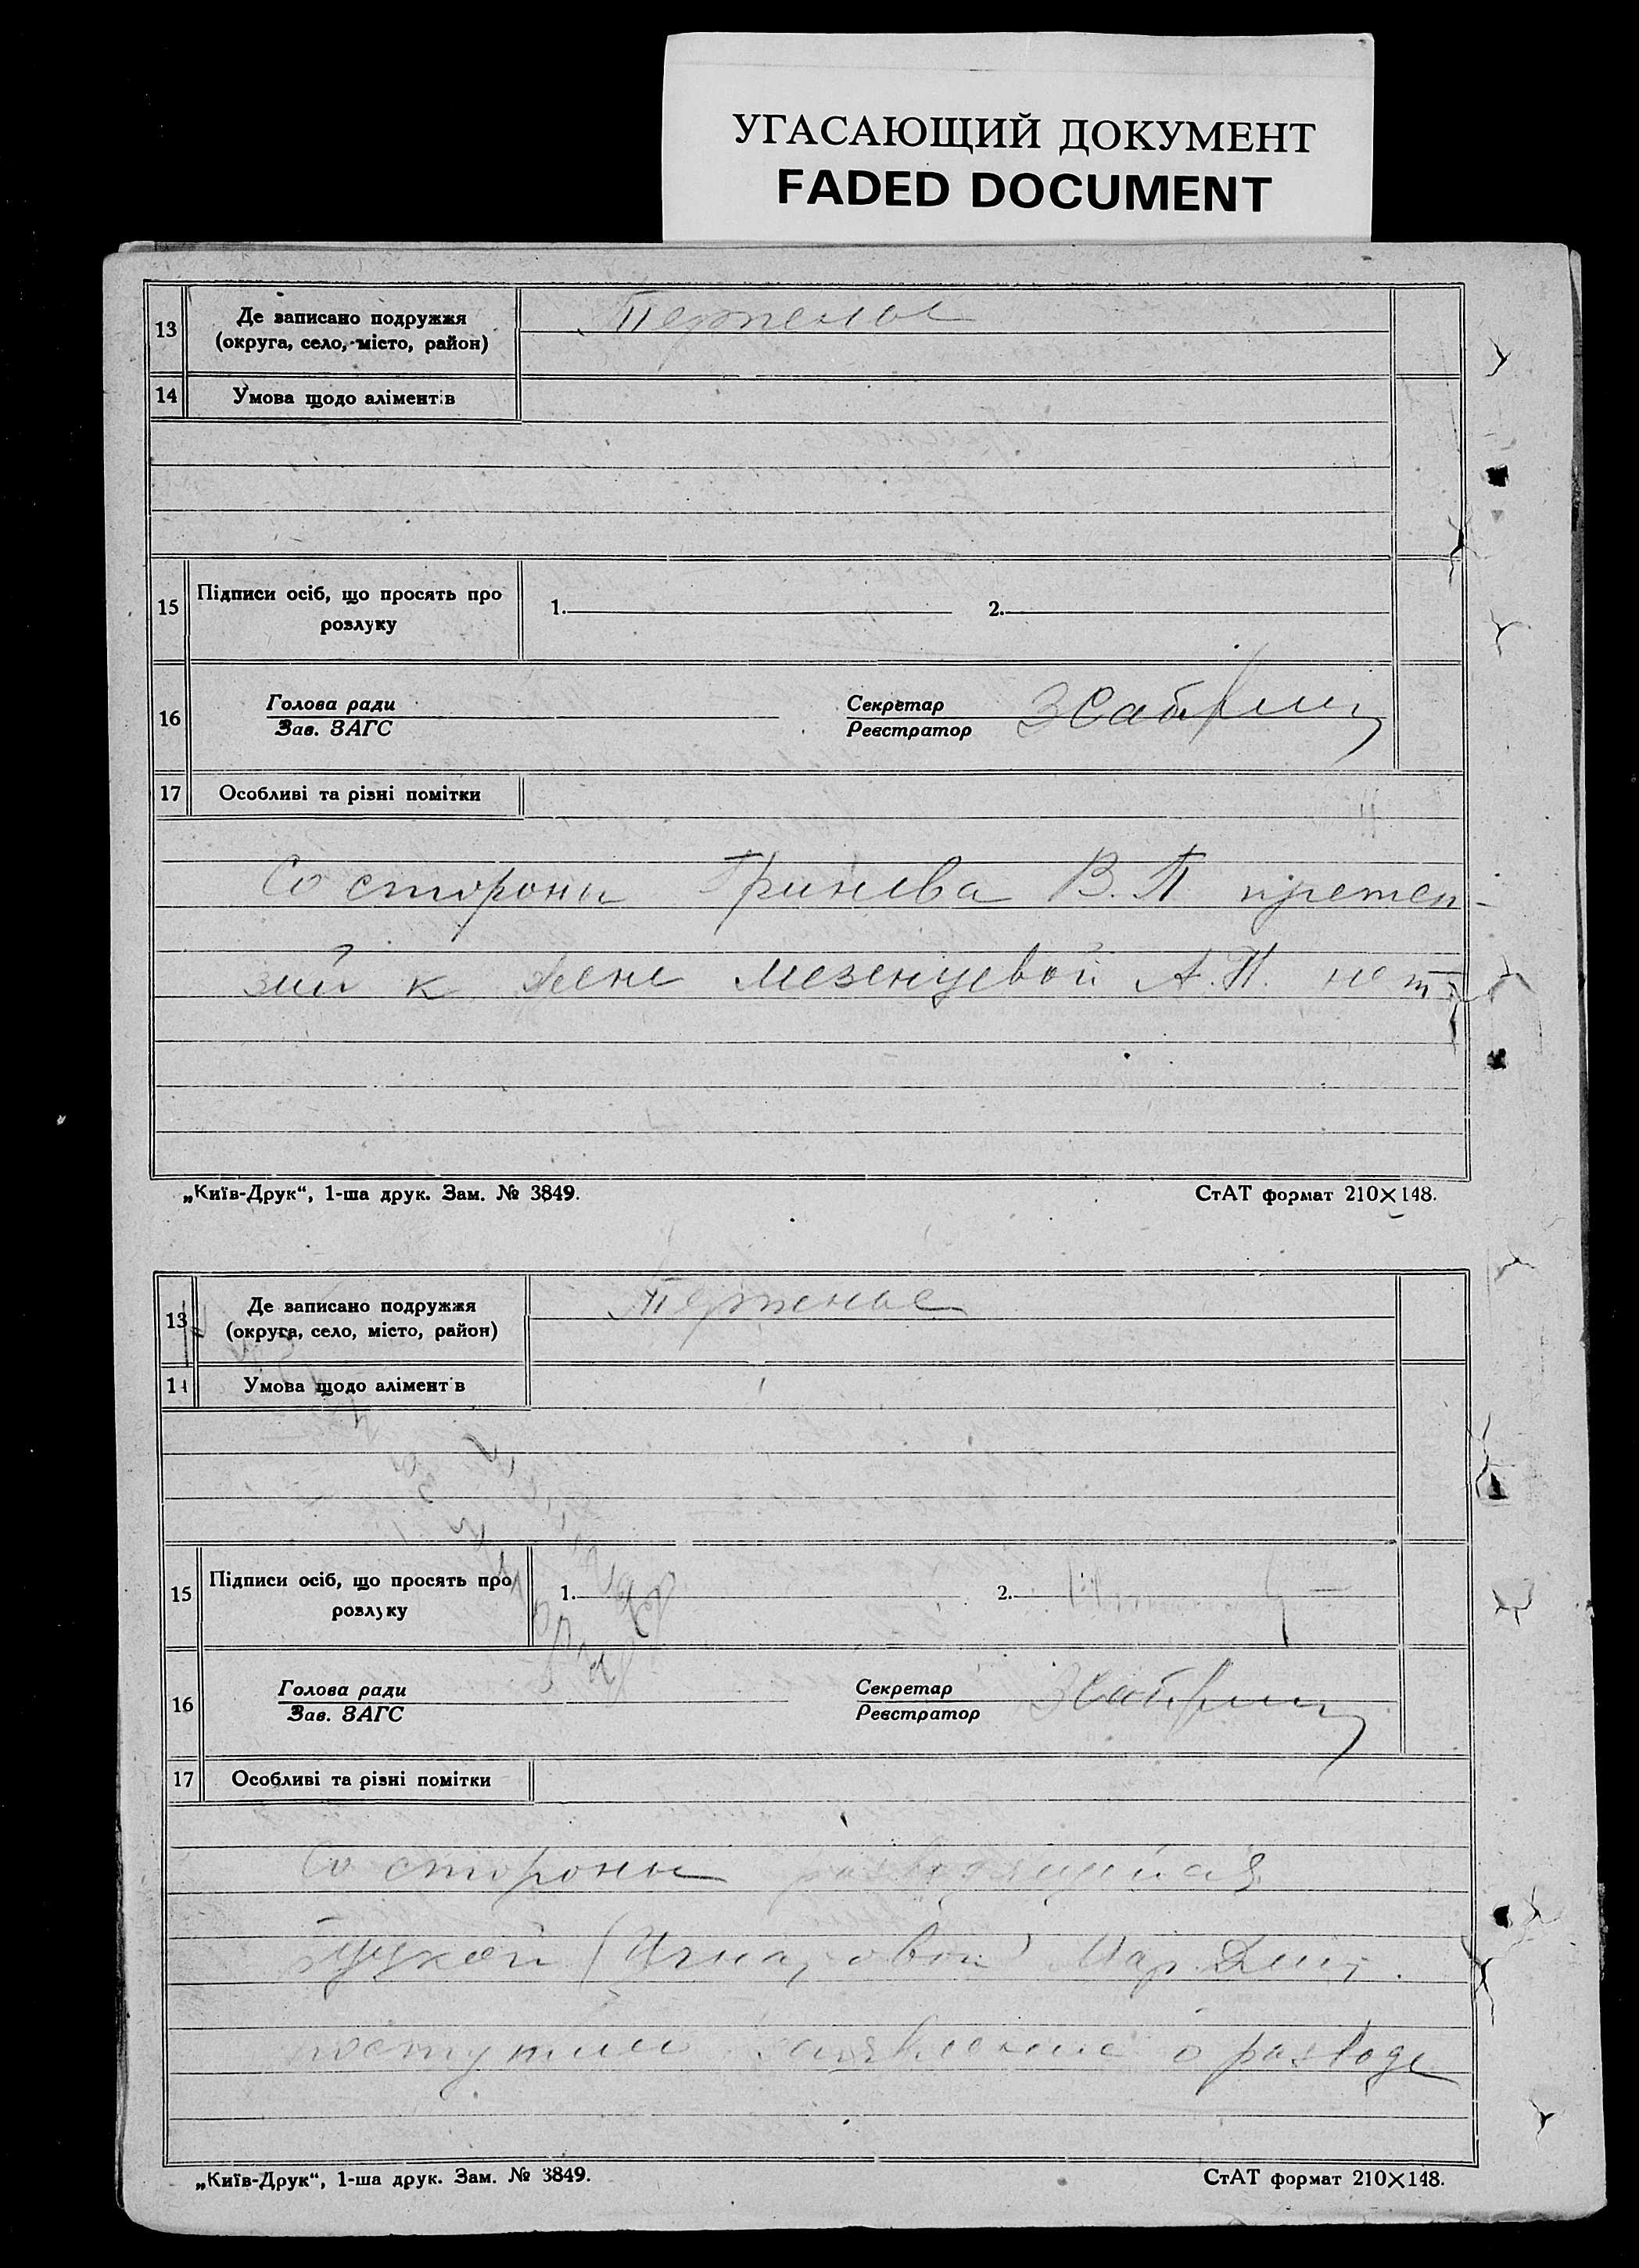 УГАСАЮЩИЙ ДОКУМЕНТ
FADED DOCUMENT
13 Де записано подружжя
(округа, село, місто, район)
14 Умова щодо аліментів
15 Підписи осіб, що просять про
розлуку
1. 2.
16 Голова ради
Зав. ЗАГС
Секретар
Реєстратор
17 Особливі та різні помітки
Со стороны Гринева В.П претен-
зий к жене Мезенцевой А.П. нет
„Київ-Друк“, 1-ша друк. Зам. № 3849. СтАТ формат 210×148.
13 Де записано подружжя
(округа, село, місто, район)
14 Умова щодо аліментів
15 Підписи осіб, що просять про
розлуку
1. 2.
16 Голова ради
Зав. ЗАГС
Секретар
Реєстратор
17 Особливі та різні помітки
Со стороны
Мар. Дмит.
поступило заявление о разводе
„Київ-Друк“, 1-ша друк. Зам. № 3849. СтАТ формат 210×148.